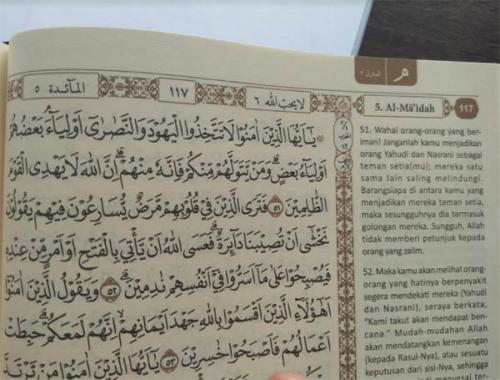 المآئدة ٥
١١٧
لا يحب الله ٦
م
5. Al-Mā'idah
117
يٰٓاَيُّهَا الَّذِيْنَ اٰمَنُوْا لَا تَتَّخِذُوا الْيَهُوْدَ وَالنَّصٰرٰٓى اَوْلِيَاۤءَ ۘ بَعْضُهُمْ
اَوْلِيَاۤءُ بَعْضٍۗ وَمَنْ يَّتَوَلَّهُمْ مِّنْكُمْ فَاِنَّهٗ مِنْهُمْ ۗ اِنَّ اللّٰهَ لَا يَهْدِى الْقَوْمَ
الظّٰلِمِيْنَ ٥١ فَتَرَى الَّذِيْنَ فِيْ قُلُوْبِهِمْ مَّرَضٌ يُّسَارِعُوْنَ فِيْهِمْ يَقُوْلُوْنَ
نَخْشٰٓى اَنْ تُصِيْبَنَا دَاۤىِٕرَةٌ ۗ فَعَسَى اللّٰهُ اَنْ يَّأْتِيَ بِالْفَتْحِ اَوْ اَمْرٍ مِّنْ عِنْدِهٖ
فَيُصْبِحُوْا عَلٰى مَآ اَسَرُّوْا فِيْٓ اَنْفُسِهِمْ نٰدِمِيْنَ ۗ ٥٢ وَيَقُوْلُ الَّذِيْنَ اٰمَنُوْٓا
اَهٰٓؤُلَاۤءِ الَّذِيْنَ اَقْسَمُوْا بِاللّٰهِ جَهْدَ اَيْمَانِهِمْ ۙ اِنَّهُمْ لَمَعَكُمْۗ حَبِطَتْ
اَعْمَالُهُمْ فَاَصْبَحُوْا خٰسِرِيْنَ ٥٣ يٰٓاَيُّهَا الَّذِيْنَ اٰمَنُوْا مَنْ يَّرْتَدَّ
51. Wahai orang-orang yang ber-
iman! Janganlah kamu menjadikan
orang Yahudi dan Nasrani sebagai
teman setia(mu); mereka satu
sama lain saling melindungi.
Barangsiapa di antara kamu yang
menjadikan mereka teman setia,
maka sesungguhnya dia termasuk
golongan mereka. Sungguh, Allah
tidak memberi petunjuk kepada
orang yang zalim.
52. Maka kamu akan melihat orang-
orang yang hatinya berpenyakit
segera mendekati mereka (Yahudi
dan Nasrani), seraya berkata,
"Kami takut akan mendapat ben-
cana." Mudah-mudahan Allah
akan mendatangkan kemenangan
(kepada Rasul-Nya), atau sesuatu
keputusan dari sisi-Nya, sehingga